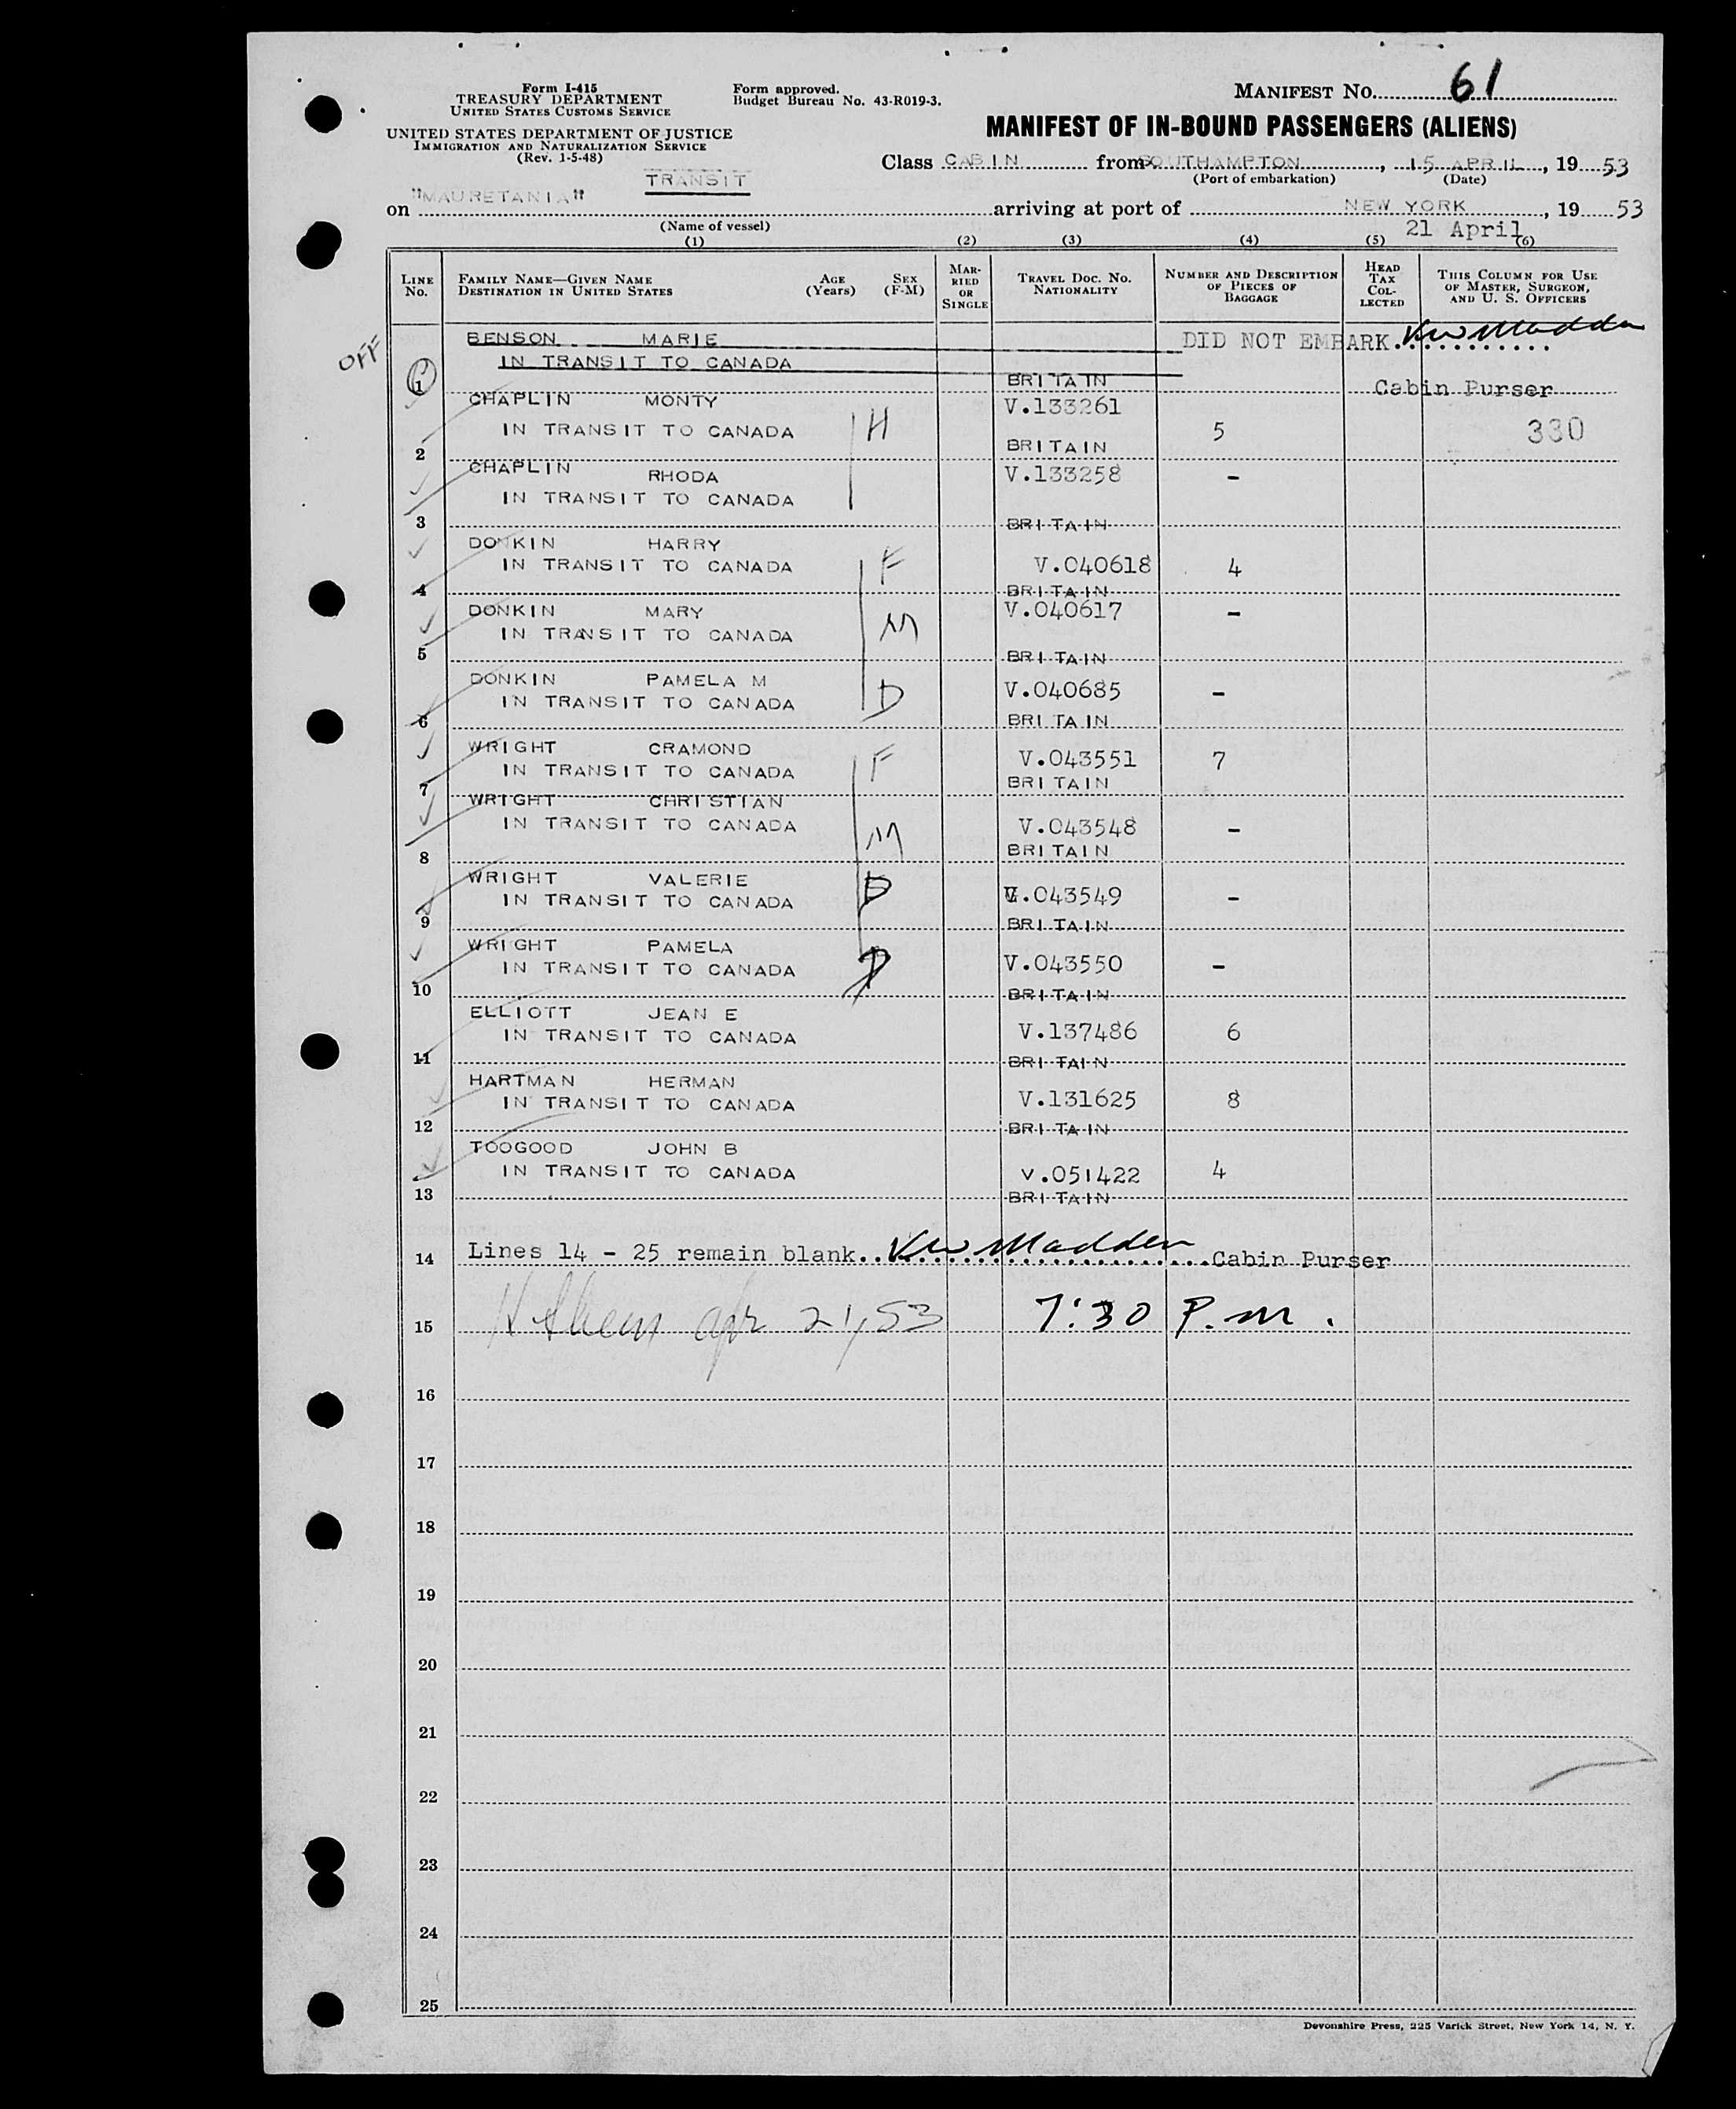 Form I-415
TREASURY DEPARTMENT
UNITED STATES CUSTOMS SERVICE
UNITED STATES DEPARTMENT OF JUSTICE
IMMIGRATION AND NATURALIZATION SERVICE
(Rev. 1-5-48)
Form approved.
Budget Bureau No. 43-R019-3.
MANIFEST NO. 61
MANIFEST OF IN-BOUND PASSENGERS (ALIENS)
Class CABIN from SOUTHAMPTON, 15 APRIL, 19 53
(Port of embarkation) (Date)
TRANSIT
on "MAURETANIA" arriving at port of NEW YORK, 19 53
(Name of vessel) 21 April
(1) (2) (3) (4) (5) (6)
LINE NO. FAMILY NAME—GIVEN NAME DESTINATION IN UNITED STATES AGE (Years) SEX (F-M) MARRIED OR SINGLE TRAVEL DOC. NO. NATIONALITY NUMBER AND DESCRIPTION OF PIECES OF BAGGAGE HEAD TAX COLLECTED THIS COLUMN FOR USE OF MASTER, SURGEON, AND U. S. OFFICERS
OFF
BENSON MARIE DID NOT EMBARK. KW Madden
IN TRANSIT TO CANADA
1 BRITAIN Cabin Purser
CHAPLIN MONTY V.133261
IN TRANSIT TO CANADA H 5 330
2 BRITAIN
CHAPLIN RHODA V.133258 –
IN TRANSIT TO CANADA
3 BRITAIN
DONKIN HARRY
IN TRANSIT TO CANADA F V.040618 4
4 BRITAIN
DONKIN MARY V.040617 –
IN TRANSIT TO CANADA M
5 BRITAIN
DONKIN PAMELA M V.040685 –
IN TRANSIT TO CANADA D
6 BRITAIN
WRIGHT CRAMOND F V.043551 7
IN TRANSIT TO CANADA
7 BRITAIN
WRIGHT CHRISTIAN
IN TRANSIT TO CANADA M V.043548 –
8 BRITAIN
WRIGHT VALERIE D
IN TRANSIT TO CANADA V.043549 –
9 BRITAIN
WRIGHT PAMELA
IN TRANSIT TO CANADA D V.043550 –
10 BRITAIN
ELLIOTT JEAN E
IN TRANSIT TO CANADA V.137486 6
11 BRITAIN
HARTMAN HERMAN
IN TRANSIT TO CANADA V.131625 8
12 BRITAIN
TOOGOOD JOHN B
IN TRANSIT TO CANADA v.051422 4
13 BRITAIN
14 Lines 14 - 25 remain blank.. KW Madden Cabin Purser
15 apr 21, 53 7:30 P.m.
16
17
18
19
20
21
22
23
24
25
Devonshire Press, 225 Varick Street, New York 14, N. Y.